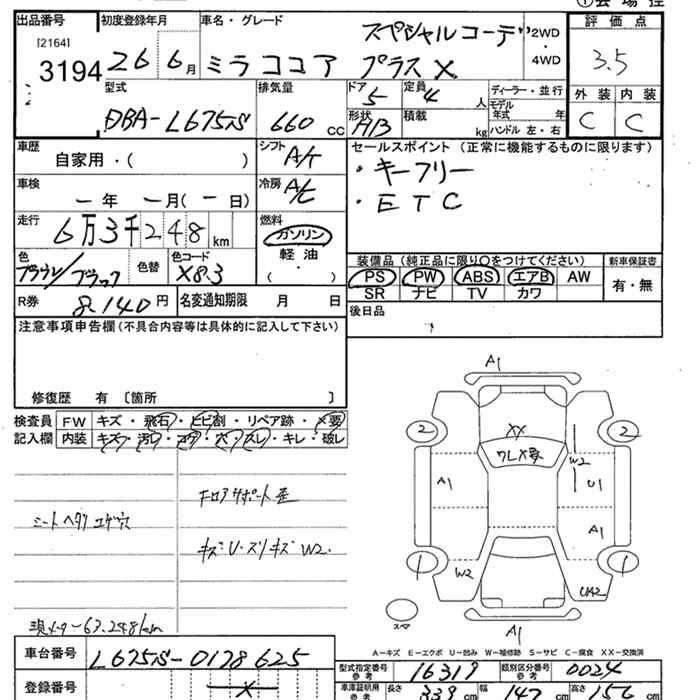 出品番号 初度登録年月 車名・グレード スペシャルコーデ 2WD・4WD 評価点
[2164]
3194 26 6月 ミラココア プラスX 3.5
型式 排気量 ドア 5 定員 4 人 ディーラー・並行 外装 内装
DBA-L675S 660 cc 形状 H/B 積載 kg モデル年式 年 C C
ハンドル 左・右
車歴 自家用・( ) シフト A/T セールスポイント (正常に機能するものに限ります)
・キーフリー
車検 ー年 ー月(ー日) 冷房 A/C ・ETC
走行 6万3千248km 燃料 ガソリン
軽油
・
( )
装備品 (純正品に限り○をつけてください) 新車保証書
色 ブラウン/ブラック 色替 色コード X83 PS PW ABS エアB AW 有・無
SR ナビ TV カワ
R券 8,140円 名変通知期限 月 日 後日品
注意事項申告欄(不具合内容等は具体的に記入して下さい)
修復歴 有 〔箇所 〕
検査員 FW キズ・飛石・ヒビ割・リペア跡・×要
記入欄 内装 キズ・汚レ・コゲ・穴・スレ・キレ・破レ
A1
2 XX 2
フレ×要
W2
A1 U1
A1
1 1
W2 UA2
A1
キズ・U・スリキズ W2.
現メーター63,248km
スマ
A-キズ E-エクボ U-凹み W-補修跡 S-サビ C-腐食 XX-交換済
車台番号 L675S-0178625
型式指定番号 16319 類別区分番号 0024
登録番号 ー×ー
車庫証明用参考 長さ 339 cm 幅 147 cm 高さ 154 cm